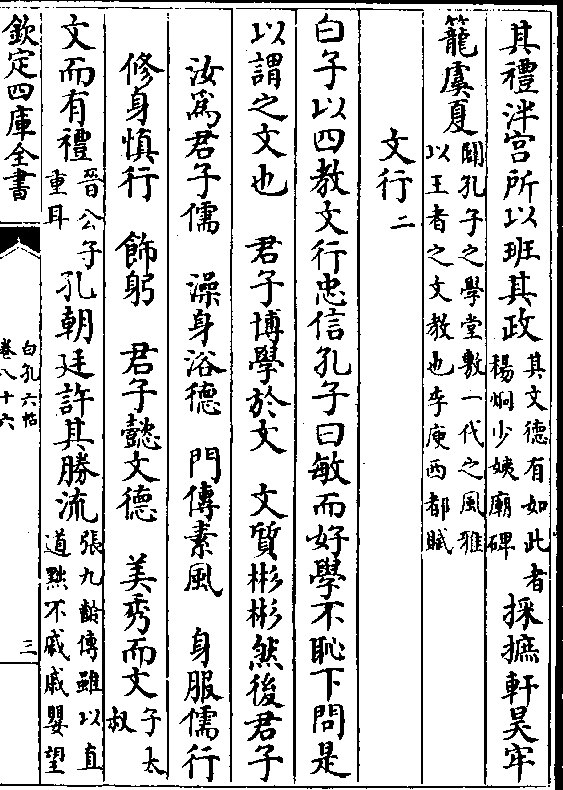 其禮泮宮所以班其政其文德有如此者楊炯少姨廟碑採摭軒昊牢
籠虞夏闢孔子之學堂敷一代之風雅以王者之文教也李庾西都賦
文行二
白子以四教文行忠信孔子曰敏而好學不恥下問是
以謂之文也　君子博學於文　文質彬彬然後君子
汝爲君子儒　澡身浴德　門傳素風　身服儒行
修身慎行　飾躬　君子懿文德　美秀而文子太叔
文而有禮晉公子重耳孔朝廷許其勝流張九齡傳雖以直道黜不戚戚嬰望
欽定四庫全書
白孔六帖
卷八十六
三